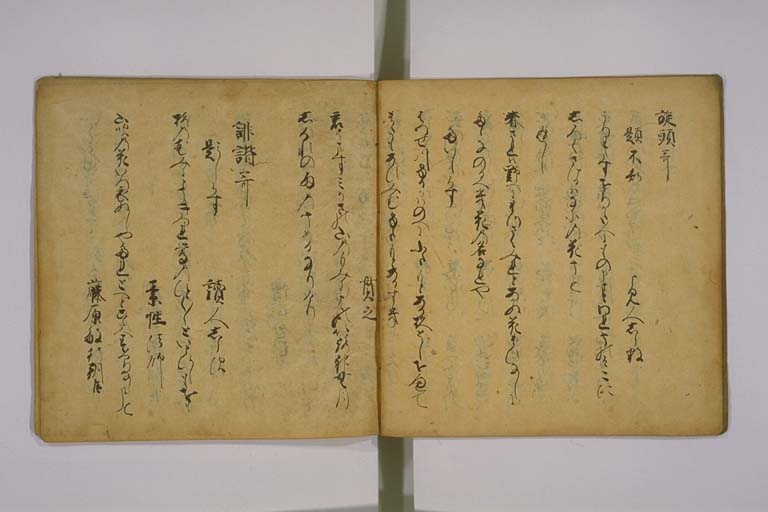 旋頭哥
題不知 よみ人しらす
うちわたすをちかた人にものまうすわれそのそこに
しろくさけるはなにの花そも
返し
春されは野へにまつさくみれとあかぬ花まひなしに
たゝなのるへき花の名なれや
たいしらす
はつせ川ふるかはのへにふたもとある杉としをへて
またもあひみむふたもとあるすき
貫之
君かさすみかさの山のもみちはのいろ神無月
しくれの雨のそめるなりけり
誹諧哥
題しらす 讀人しらす
梅の花みにこそきつれ鶯のひとくひとくといとひしもをる
素性法師
山吹の花いろ衣ぬしやたれとへとこたへすくちなしにして
藤原敏行朝臣